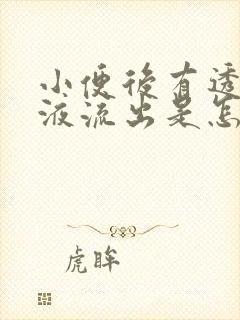 小便後有透
液流出是怎
虎眸